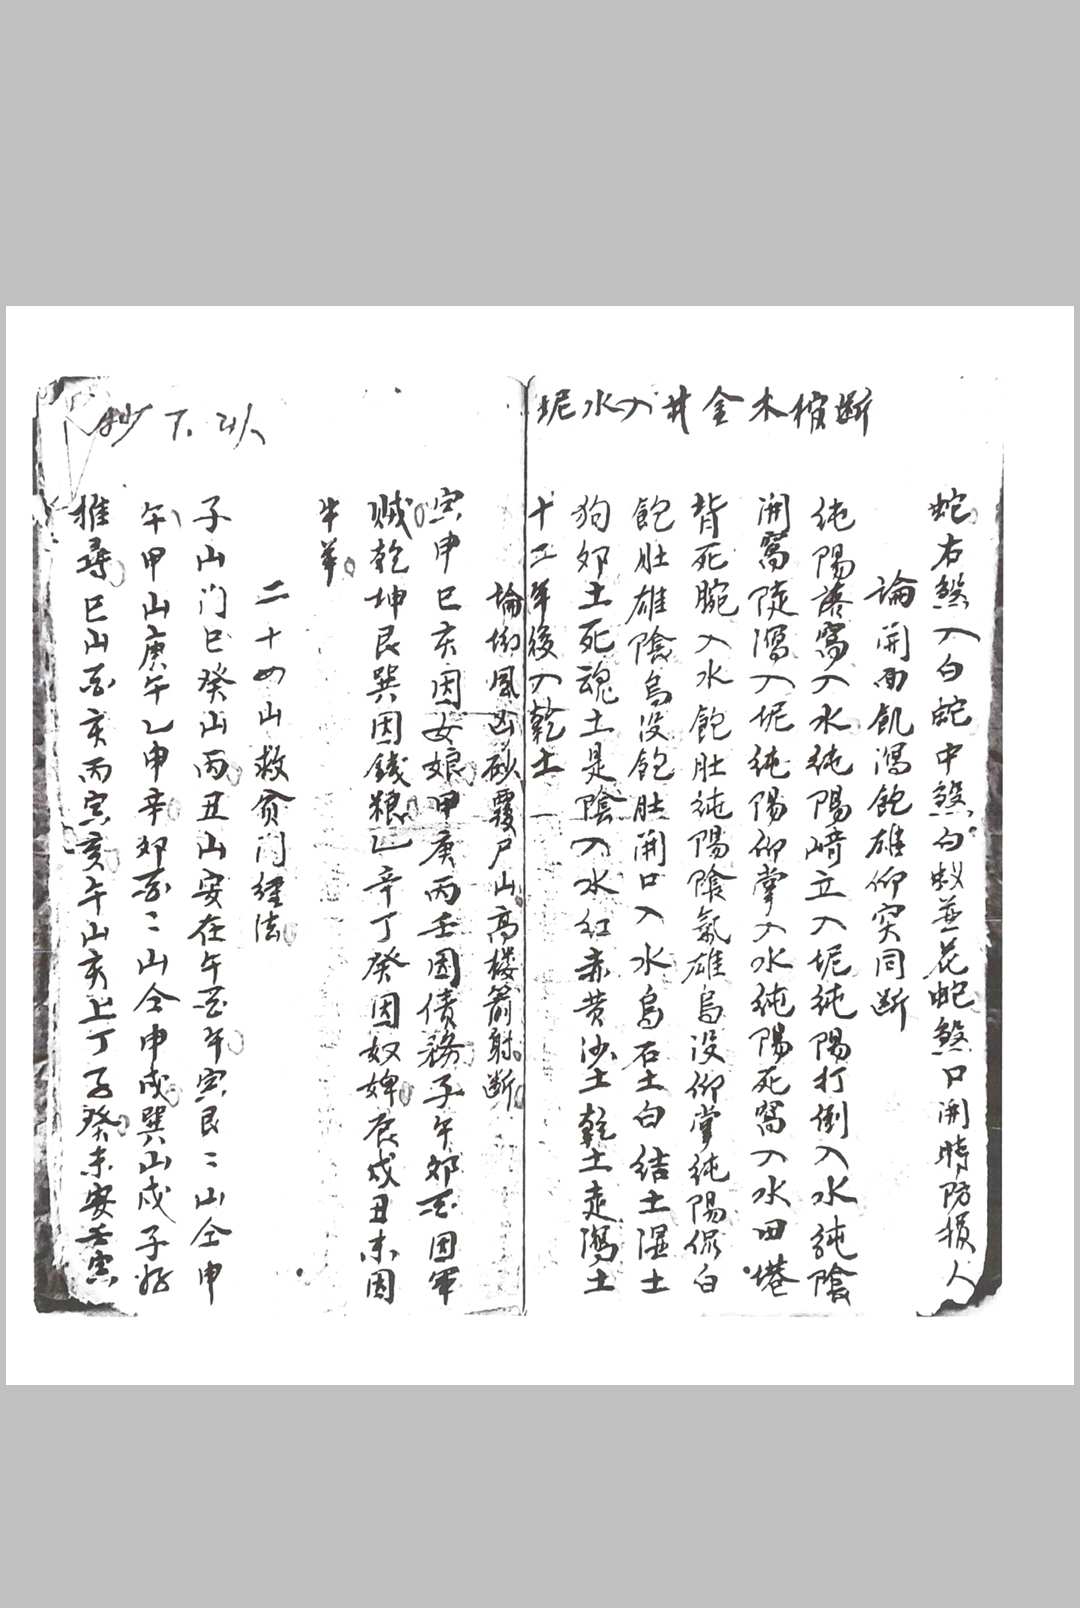 坭水入井金木棺斷
蛇右煞入白蛇中煞白蚁並花蛇煞口開時防損人
論開面飢瀉飽雄仰突同斷
純陽落窩入水純陽崎立入坭純陽打倒入水純陰
開窩陡瀉入坭純陽仰掌入水純陽死窩入水田塂
背死腕入水飽肚純陽陰氣雄烏沒仰掌純陽侭白
飽肚雄陰烏沒飽肚開口入水烏石土白結土濕土
狗卯土死魂土是陰入水红赤黄沙土乾土走瀉土
十二年後入乾土
論坳風凶砂覆尸山高楼箭射断
寅申巳亥因女娘甲庚丙壬因债務子午卯酉因軍
賊乾坤艮巽因錢粮乙辛丁癸因奴婢辰戍丑未因
牛羊
二十四山救贫门经法
子山门巳癸山丙丑山安在午酉午寅艮二山仝申
午甲山庚午乙申辛卯酉二山仝申戍巽山戍子好
推尋巳山酉亥丙寅亥午山亥上丁子癸未安壬寅
抄下以